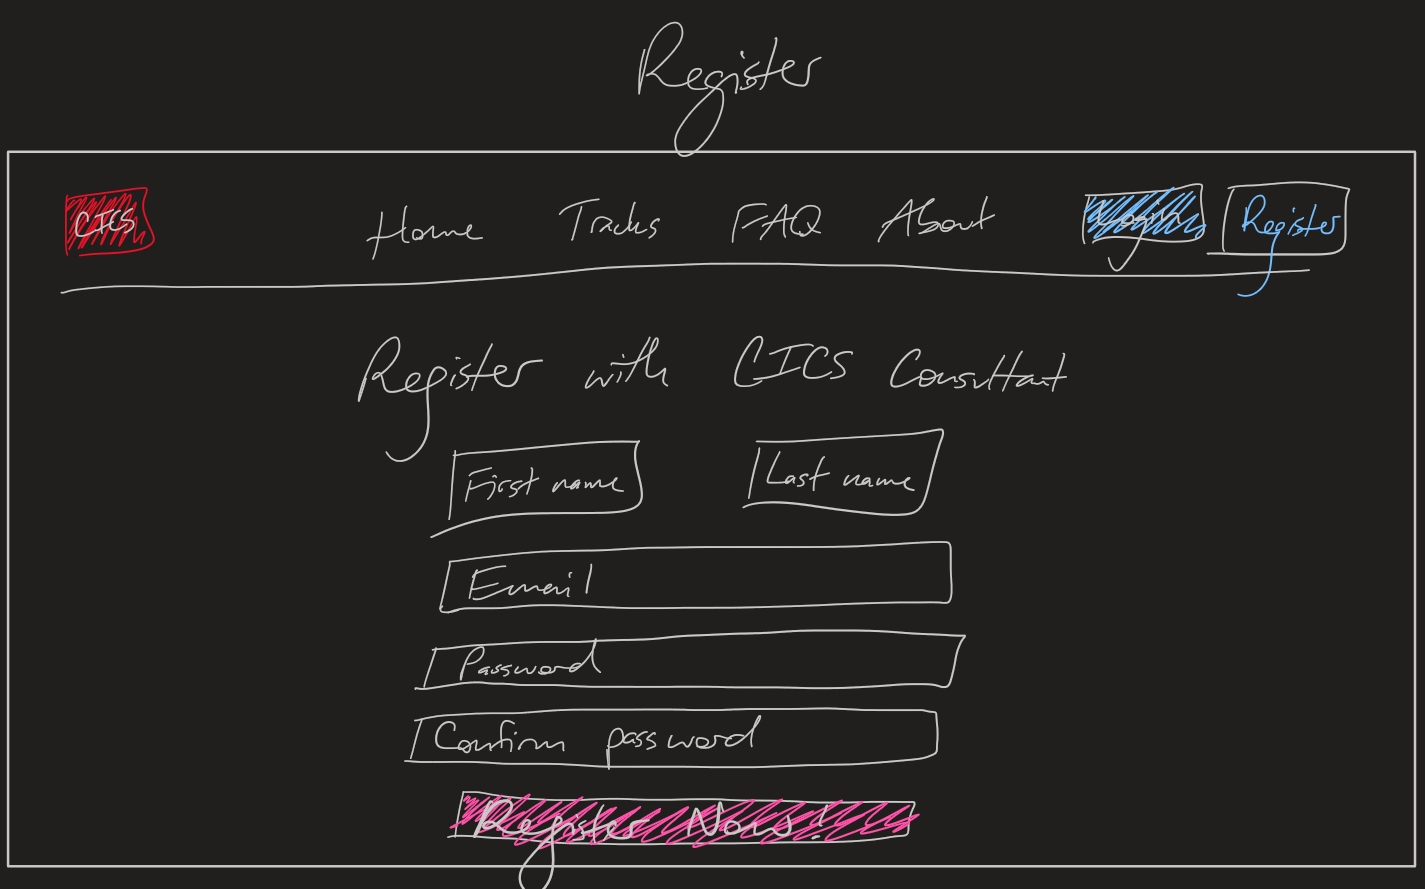 Register
CICS Home Tracks FAQ About Login Register
Register with CICS Consultant
First name Last name
Email
Password
Confirm password
Register Now!